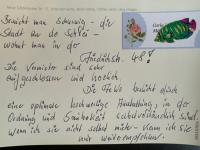 Braucht man Schleswig - die
Stadt an der Schlei -
wohnt man in der
Friedrichstr. 48!
Die Vermieter sind sehr
aufgeschlossen und herzlich.
Die FeWo besticht durch
eine optimale hochwertige Ausstattung, in der
Ordnung und Sauberkeit selbstverständlich sind.
Wenn ich sie nicht selbst miete - kann ich sie
nur weiterempfehlen.